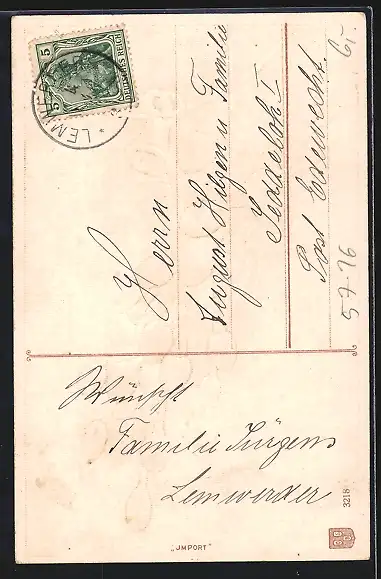 5
5
DEUTSCHES REICH
LEMWERDER
Herrn
August Hilgen u Familie
Jeddeloh I
Post Edewecht.
61.
5-7-16
Wünscht
Familie Jürgens
Lemwerder
3218
„JMPORT"